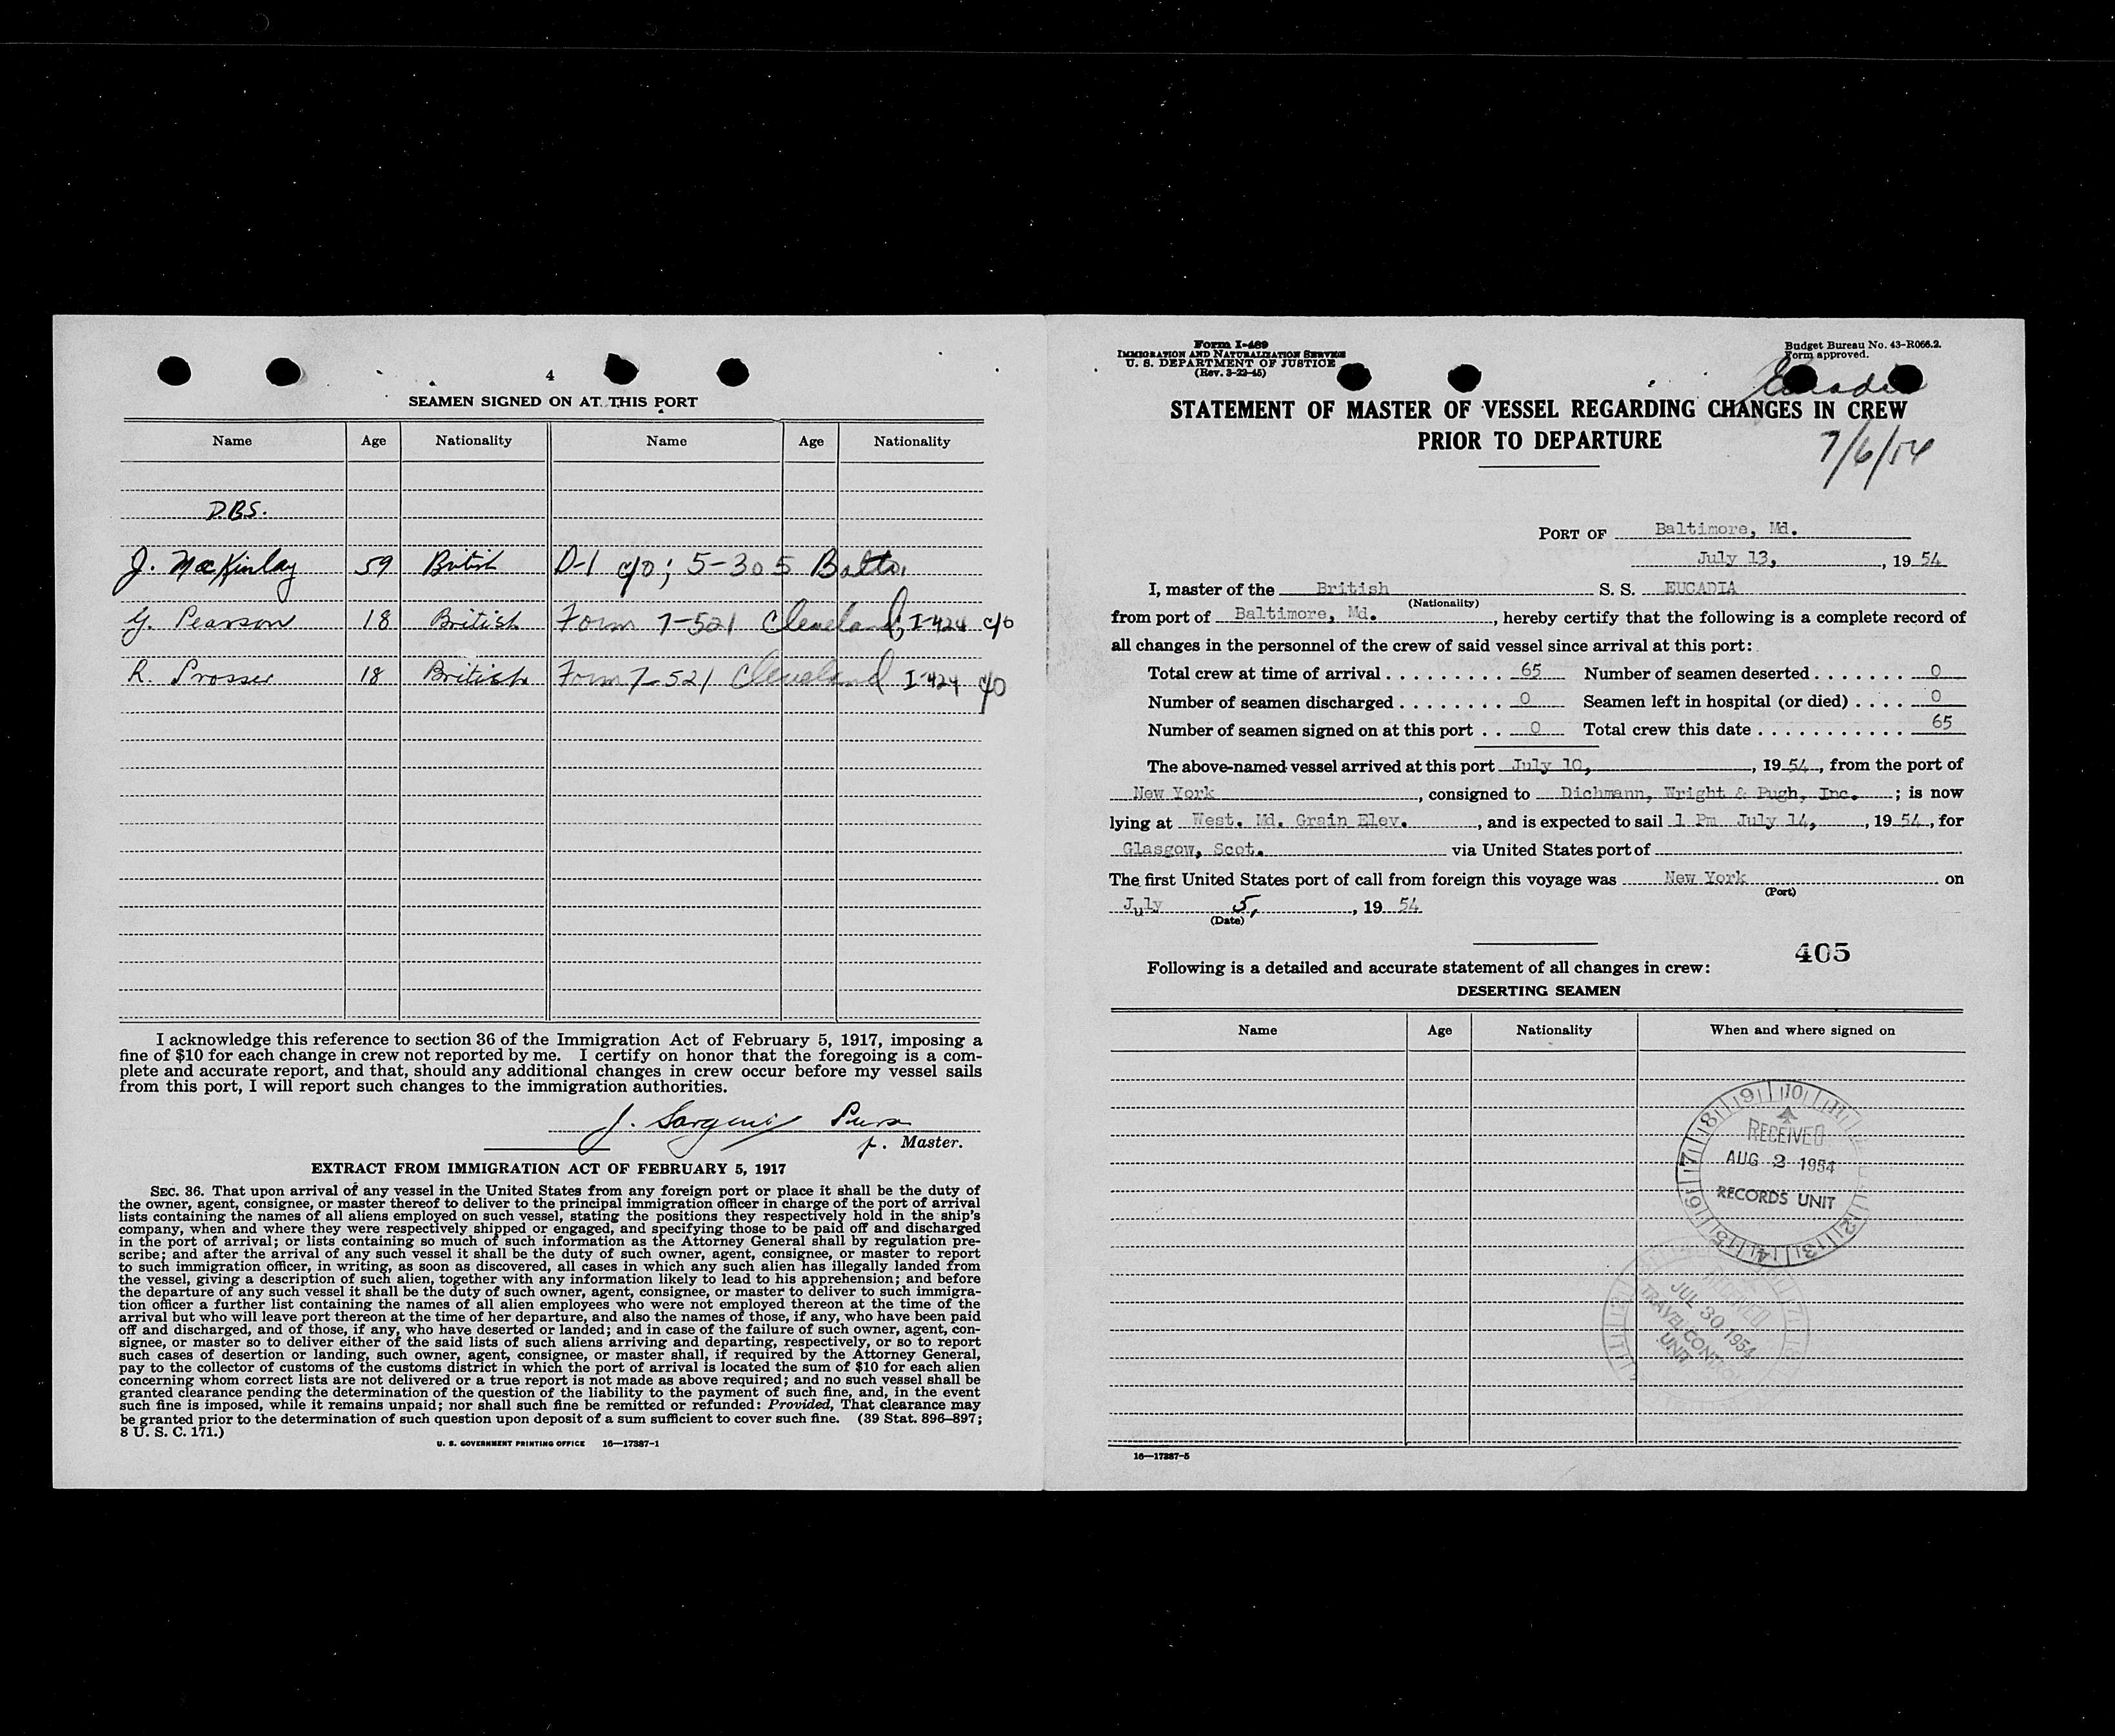 4
SEAMEN SIGNED ON AT THIS PORT
Name Age Nationality Name Age Nationality
D.B.S.
J. MacKinlay 59 British D-1 c/o; 5-305 Balto.
G. Pearson 18 British Form 7-521 Cleveland, I-424 c/o
R. Prosser 18 British Form 7-521 Cleveland I-424 c/o
I acknowledge this reference to section 36 of the Immigration Act of February 5, 1917, imposing a
fine of $10 for each change in crew not reported by me. I certify on honor that the foregoing is a com-
plete and accurate report, and that, should any additional changes in crew occur before my vessel sails
from this port, I will report such changes to the immigration authorities.
J.
Master.
EXTRACT FROM IMMIGRATION ACT OF FEBRUARY 5, 1917
SEC. 36. That upon arrival of any vessel in the United States from any foreign port or place it shall be the duty of
the owner, agent, consignee, or master thereof to deliver to the principal immigration officer in charge of the port of arrival
lists containing the names of all aliens employed on such vessel, stating the positions they respectively hold in the ship's
company, when and where they were respectively shipped or engaged, and specifying those to be paid off and discharged
in the port of arrival; or lists containing so much of such information as the Attorney General shall by regulation pre-
scribe; and after the arrival of any such vessel it shall be the duty of such owner, agent, consignee, or master to report
to such immigration officer, in writing, as soon as discovered, all cases in which any such alien has illegally landed from
the vessel, giving a description of such alien, together with any information likely to lead to his apprehension; and before
the departure of any such vessel it shall be the duty of such owner, agent, consignee, or master to deliver to such immigra-
tion officer a further list containing the names of all alien employees who were not employed thereon at the time of the
arrival but who will leave port thereon at the time of her departure, and also the names of those, if any, who have been paid
off and discharged, and of those, if any, who have deserted or landed; and in case of the failure of such owner, agent, con-
signee, or master so to deliver either of the said lists of such aliens arriving and departing, respectively, or so to report
such cases of desertion or landing, such owner, agent, consignee, or master shall, if required by the Attorney General,
pay to the collector of customs of the customs district in which the port of arrival is located the sum of $10 for each alien
concerning whom correct lists are not delivered or a true report is not made as above required; and no such vessel shall be
granted clearance pending the determination of the question of the liability to the payment of such fine, and, in the event
such fine is imposed, while it remains unpaid; nor shall such fine be remitted or refunded: Provided, That clearance may
be granted prior to the determination of such question upon deposit of a sum sufficient to cover such fine. (39 Stat. 896–897;
8 U. S. C. 171.)
U. S. GOVERNMENT PRINTING OFFICE 16—17387-1
Form I-489
IMMIGRATION AND NATURALIZATION SERVICE
U. S. DEPARTMENT OF JUSTICE
(Rev. 3-22-45)
Budget Bureau No. 43-R066.2.
Form approved.
STATEMENT OF MASTER OF VESSEL REGARDING CHANGES IN CREW
PRIOR TO DEPARTURE
7/6/54
PORT OF Baltimore, Md.
July 13, , 19 54
I, master of the British S. S. EUCADIA
(Nationality)
from port of Baltimore, Md. , hereby certify that the following is a complete record of
all changes in the personnel of the crew of said vessel since arrival at this port:
Total crew at time of arrival . . . . . . . . . 65 Number of seamen deserted . . . . . . . 0
Number of seamen discharged . . . . . . . . 0 Seamen left in hospital (or died) . . . . 0
Number of seamen signed on at this port . . 0 Total crew this date . . . . . . . . . . . 65
The above-named vessel arrived at this port July 10, , 19 54 , from the port of
New York , consigned to Dichmann, Wright & Pugh, Inc. ; is now
lying at West. Md. Grain Elev. , and is expected to sail 1 Pm July 14, , 19 54 , for
Glasgow, Scot. via United States port of
The first United States port of call from foreign this voyage was New York on
(Port)
July 5, , 19 54
(Date)
405
Following is a detailed and accurate statement of all changes in crew:
DESERTING SEAMEN
Name Age Nationality When and where signed on
RECEIVED
AUG 2 1954
RECORDS UNIT
RECEIVED
JUL 30 1954
TRAVEL CONTROL
UNIT
16—17387-5